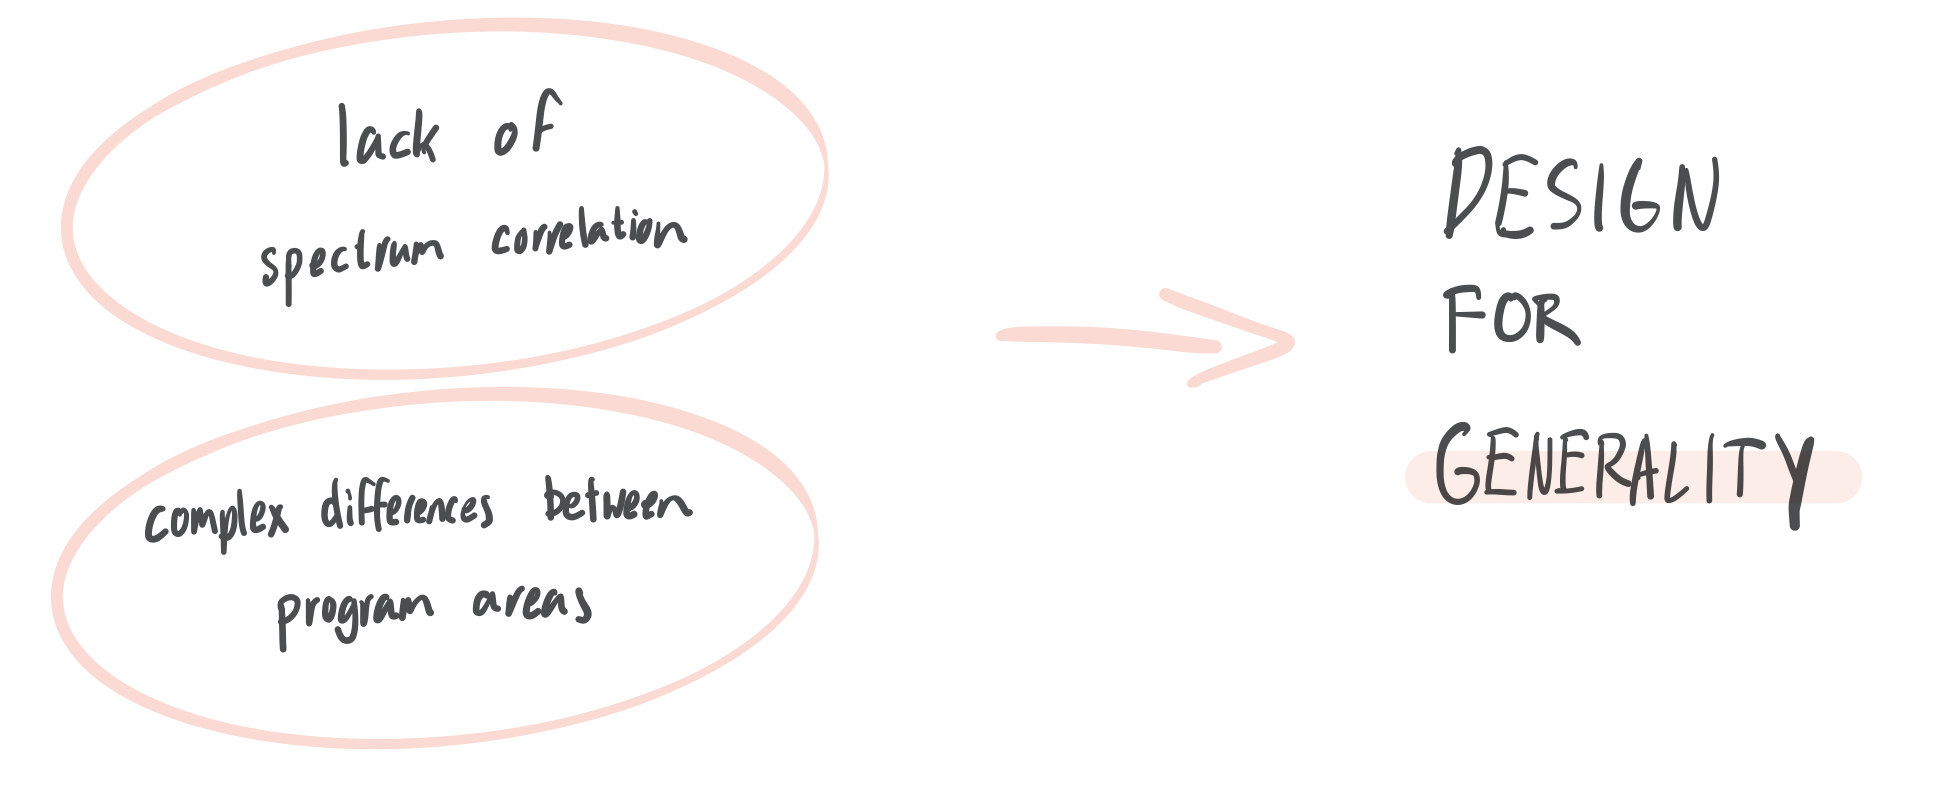 lack of
spectrum correlation
complex differences between
program areas
DESIGN
FOR
GENERALITY